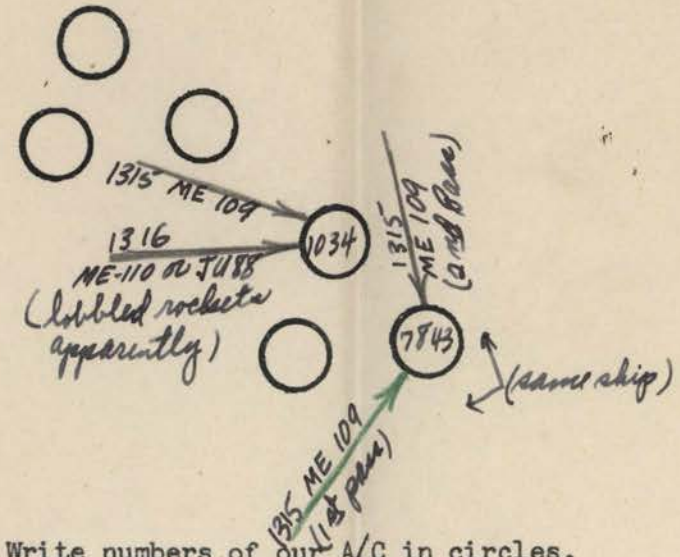 1315 ME 109
1316
ME-110 or JU88
(lobbled rockets
apparently)
1034
1315
ME 109
(2nd Pass)
7843
(same ship)
1315 ME 109
(1st pass)
Write numbers of our A/C in circles.